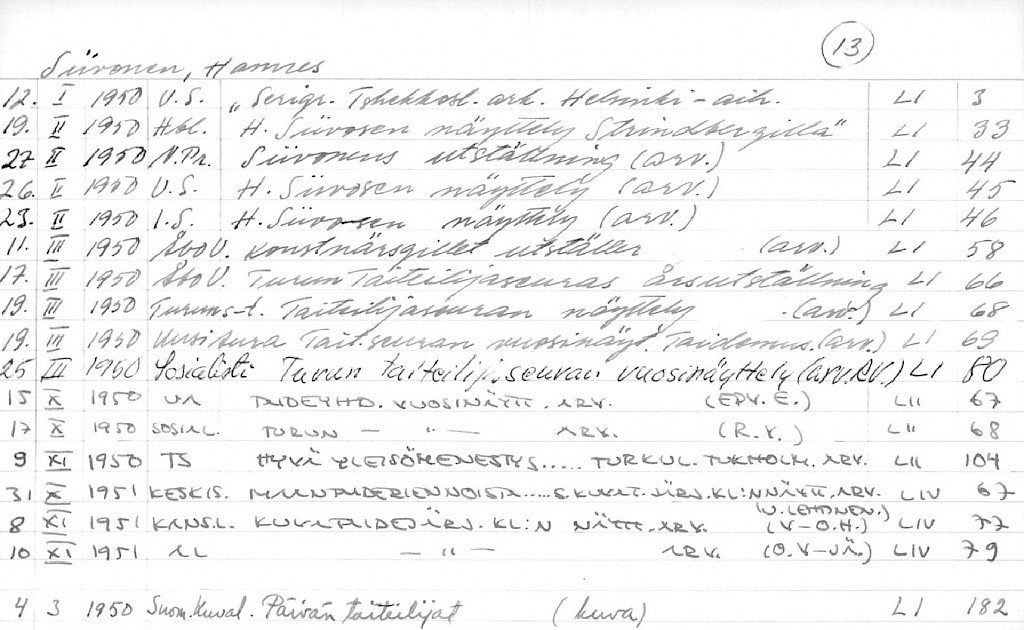 13
Siivonen, Hannes
12. I 1950 U.S. "Serigr. Tshekkosl. ark. Helsinki-aih. LI 3
19. II 1950 Hbl. H. Siivosen näyttely Strindbergillä" LI 33
27 II 1950 N.Pr. Siivonens utställning (arv.) LI 44
26. II 1950 U.S. H. Siivosen näyttely (arv.) LI 45
23. II 1950 I.S. H. Siivosen näyttely (arv.) LI 46
11. III 1950 Åbo U. Konstnärsgillet utställer (arv.) LI 58
17. III 1950 Åbo U. Turun Taiteilijaseuras årsutställning LI 66
19. III 1950 Turuns-t. Taiteilijaseuran näyttely (arv.) LI 68
19. III 1950 Uusi Aura Tait.seuran vuosinäyt. Taidemus. (arv.) LI 69
25 III 1950 Sosialisti Turun taiteilij.seuran vuosinäyttely (arv. R.V.) LI 80
15 X 1950 UA TAIDEYHD. VUOSINÄYTT. ARV. (EPV. E.) LII 67
17 X 1950 SOSIAL. TURUN — " — ARV. (R.V.) LII 68
9 XI 1950 TS HYVÄ YLEISÖMENESTYS..... TURKUL. TUKHOLM. ARV. LII 104
31 X 1951 KESKIS. MAANTAIDERIENNOISTA.....S.KUVAT.JÄRJ.KL:N NÄYTT. ARV. (U. LEHTINEN.) LIV 67
8 XI 1951 KANS.L. KUVATAIDEJÄRJ. KL:N NÄYTT. ARV. (V-O.H.) LIV 77
10 XI 1951 AL — " — ARV. (O.V-JA.) LIV 79
4 3 1950 Suom.Kuval. Päivän taiteilijat (kuva) LI 182